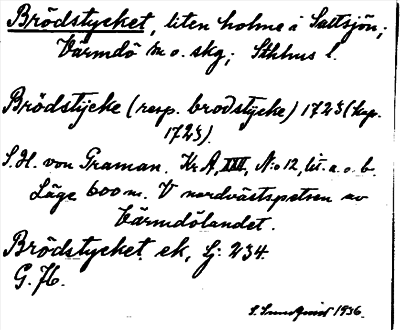 Brödstycket, liten holme i Saltsjön;
Värmdö m o. skg; Sthlms l.
Brödstycke (resp. brodstycke) 1723 (kop.
1723).
S. H. von Graman. Kr. A, XIII, No 12, lit. a. o. b.
Läge 600 m. V nordvästspetsen av
Värmdölandet.
Brödstycket ek, Lj: 234.
G. Jb.
1936.